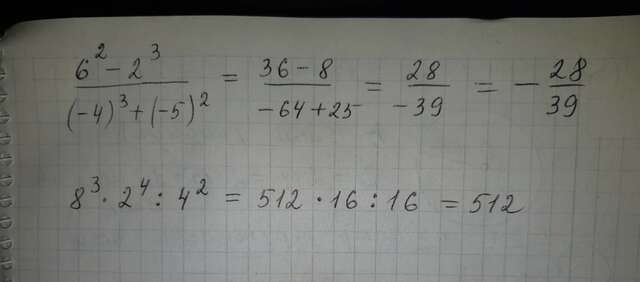 (6² − 2³)/((−4)³ + (−5)²) = (36 − 8)/(−64 + 25) = 28/(−39) = −28/39
8³ · 2⁴ : 4² = 512 · 16 : 16 = 512